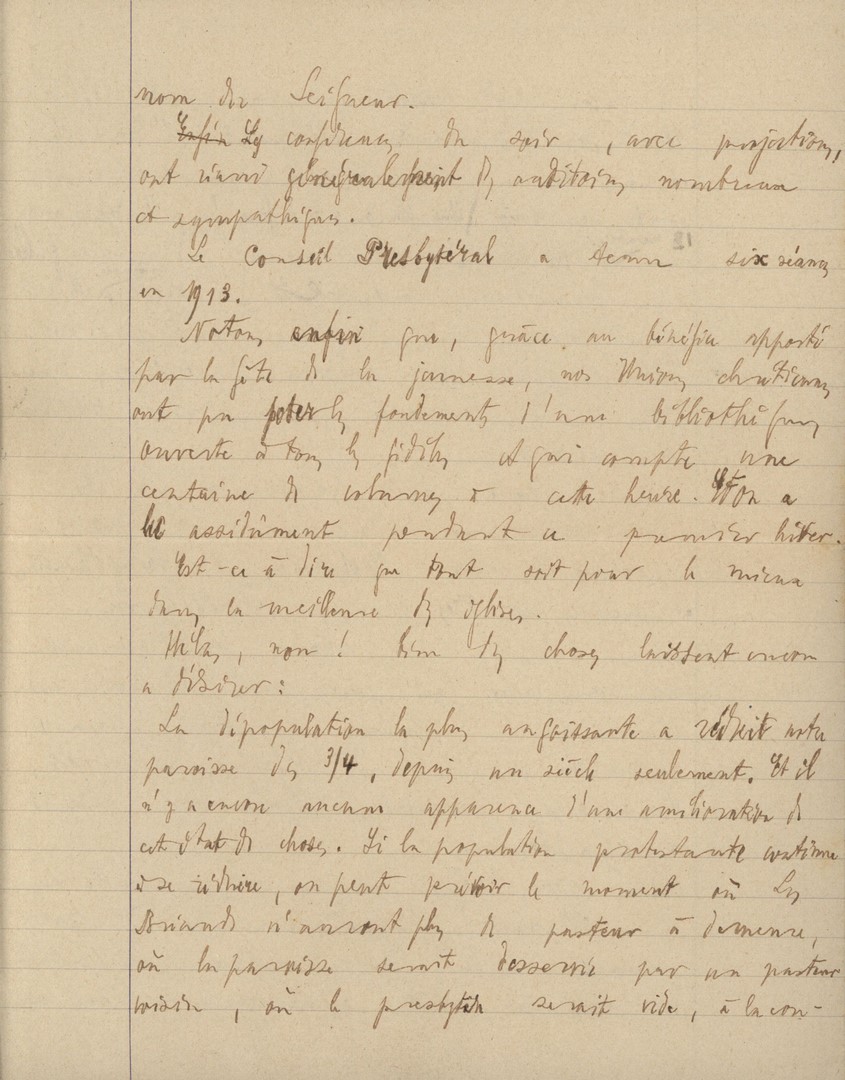 nom du Seigneur.
Enfin Les conférences du soir, avec projections,
ont réuni généralement des auditoires nombreux
et sympathiques.
Le Conseil Presbytéral a tenu six séances
en 1913.
Notons enfin que, grâce au bénéfice apporté
par la fête de la jeunesse, nos Unions chrétiennes
ont pu jeter les fondements d'une bibliothèque
ouverte à tous les fidèles et qui compte une
centaine de volumes à cette heure. Et on a
lu assidûment pendant ce premier hiver.
Est-ce à dire que tout soit pour le mieux
dans la meilleure des églises.
Hélas, non ! bien des choses laissent encore
à désirer :
La dépopulation la plus angoissante a réduit notre
paroisse des 3/4, depuis un siècle seulement. Et il
n'y a encore aucune apparence d'une amélioration de
cet état de choses. Si la population protestante continue
à se réduire, on peut prévoir le moment où Les
Briands n'auront plus de pasteur à demeure,
où la paroisse serait desservie par un pasteur
voisin, où le presbytère serait vide, à la con-